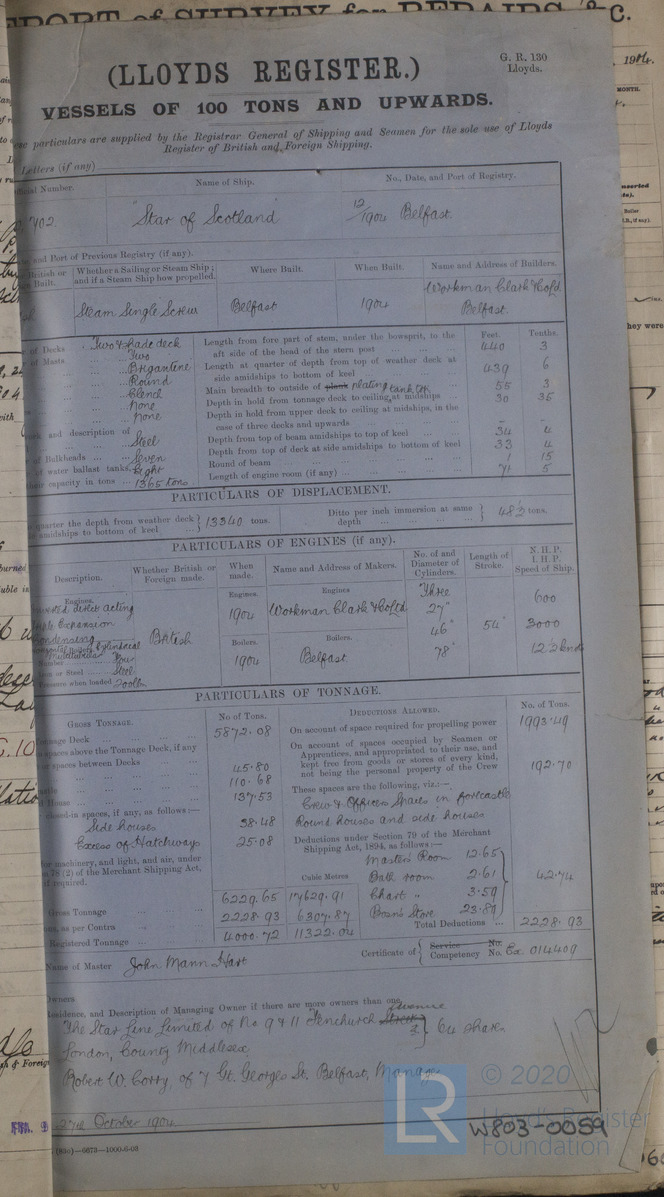 REPORT of SURVEY for REPAIRS, &c.
G. R. 130
Lloyds.
(LLOYDS REGISTER.)
VESSELS OF 100 TONS AND UPWARDS.
particulars are supplied by the Registrar General of Shipping and Seamen for the sole use of Lloyds
Register of British and Foreign Shipping.
Letters (if any)
Number. Name of Ship. No., Date, and Port of Registry.
702 "Star of Scotland" 12/1904 Belfast.
and Port of Previous Registry (if any).
British or Built. Whether a Sailing or Steam Ship; and if a Steam Ship how propelled. Where Built. When Built. Name and Address of Builders.
Steam Single Screw Belfast 1904 Workman Clark & Co Ld Belfast.
Feet. Tenths.
of Decks Two & shade deck
of Masts Two
Brigantine
Round
Clench
None
None
and description of Steel
of Bulkheads Seven
water ballast tanks Eight
their capacity in tons 1365 tons
Length from fore part of stem, under the bowsprit, to the
aft side of the head of the stern post 440 3
Length at quarter of depth from top of weather deck at
side amidships to bottom of keel 439 6
Main breadth to outside of plank plating 55 3
Depth in hold from tonnage deck to ceiling at midships tank top 30 35
Depth in hold from upper deck to ceiling at midships, in the
case of three decks and upwards - -
Depth from top of beam amidships to top of keel 34 4
Depth from top of deck at side amidships to bottom of keel 33 4
Round of beam 1 15
Length of engine room (if any) 71 5
PARTICULARS OF DISPLACEMENT.
quarter the depth from weather deck
amidships to bottom of keel 13340 tons.
Ditto per inch immersion at same
depth 48½ tons.
PARTICULARS OF ENGINES (if any).
Description. Whether British or Foreign made. When made. Name and Address of Makers. No. of and Diameter of Cylinders. Length of Stroke. N.H.P. I.H.P. Speed of Ship.
Engines. Engines. Engines Three 600
direct acting 1904 Workman Clark & Co Ld 27"
Expension
Condensing British 46" 54" 3000
Cylindrical Boilers. Boilers. 78" 12½ knots
Multitubular
Number Four 1904 Belfast
Iron or Steel Steel
Pressure when loaded 200 lbs
PARTICULARS OF TONNAGE.
GROSS TONNAGE. No of Tons. DEDUCTIONS ALLOWED. No. of Tons.
Tonnage Deck 5872.08
spaces above the Tonnage Deck, if any
spaces between Decks 45.80
110.68
House 137.53
closed-in spaces, if any, as follows:—
Side houses 38.48
Excess of Hatchways 25.08
for machinery, and light, and air, under
78 (2) of the Merchant Shipping Act,
if required.
Cubic Metres
Gross Tonnage 6229.65 17629.91
as per Contra 2228.93 6307.87
Registered Tonnage 4000.72 11322.04
On account of space required for propelling power 1993.49
On account of spaces occupied by Seamen or
Apprentices, and appropriated to their use, and
kept free from goods or stores of every kind,
not being the personal property of the Crew 192.70
These spaces are the following, viz.:—
Crew & Officers Spaces in forecastle
Round houses and side houses
Deductions under Section 79 of the Merchant
Shipping Act, 1894, as follows:—
Master's Room 12.65
room 2.61 42.74
Chart " 3.59
Bosn's Store 23.89
Total Deductions 2228.93
Name of Master John Mann Hart
Certificate of Service No.
Competency No. Ex 014409
Owners
Residence, and Description of Managing Owner if there are more owners than one.
The Star Line Limited of No 9 & 11 Fenchurch Street Avenue 64 shares
London, County Middlesex
Robert W. Corry, of 7 Gt. Georges St. Belfast, Manager
27th October 1904
6673—1000-6-03
W803-0059
LR
© 2020
Lloyd's Register
Foundation